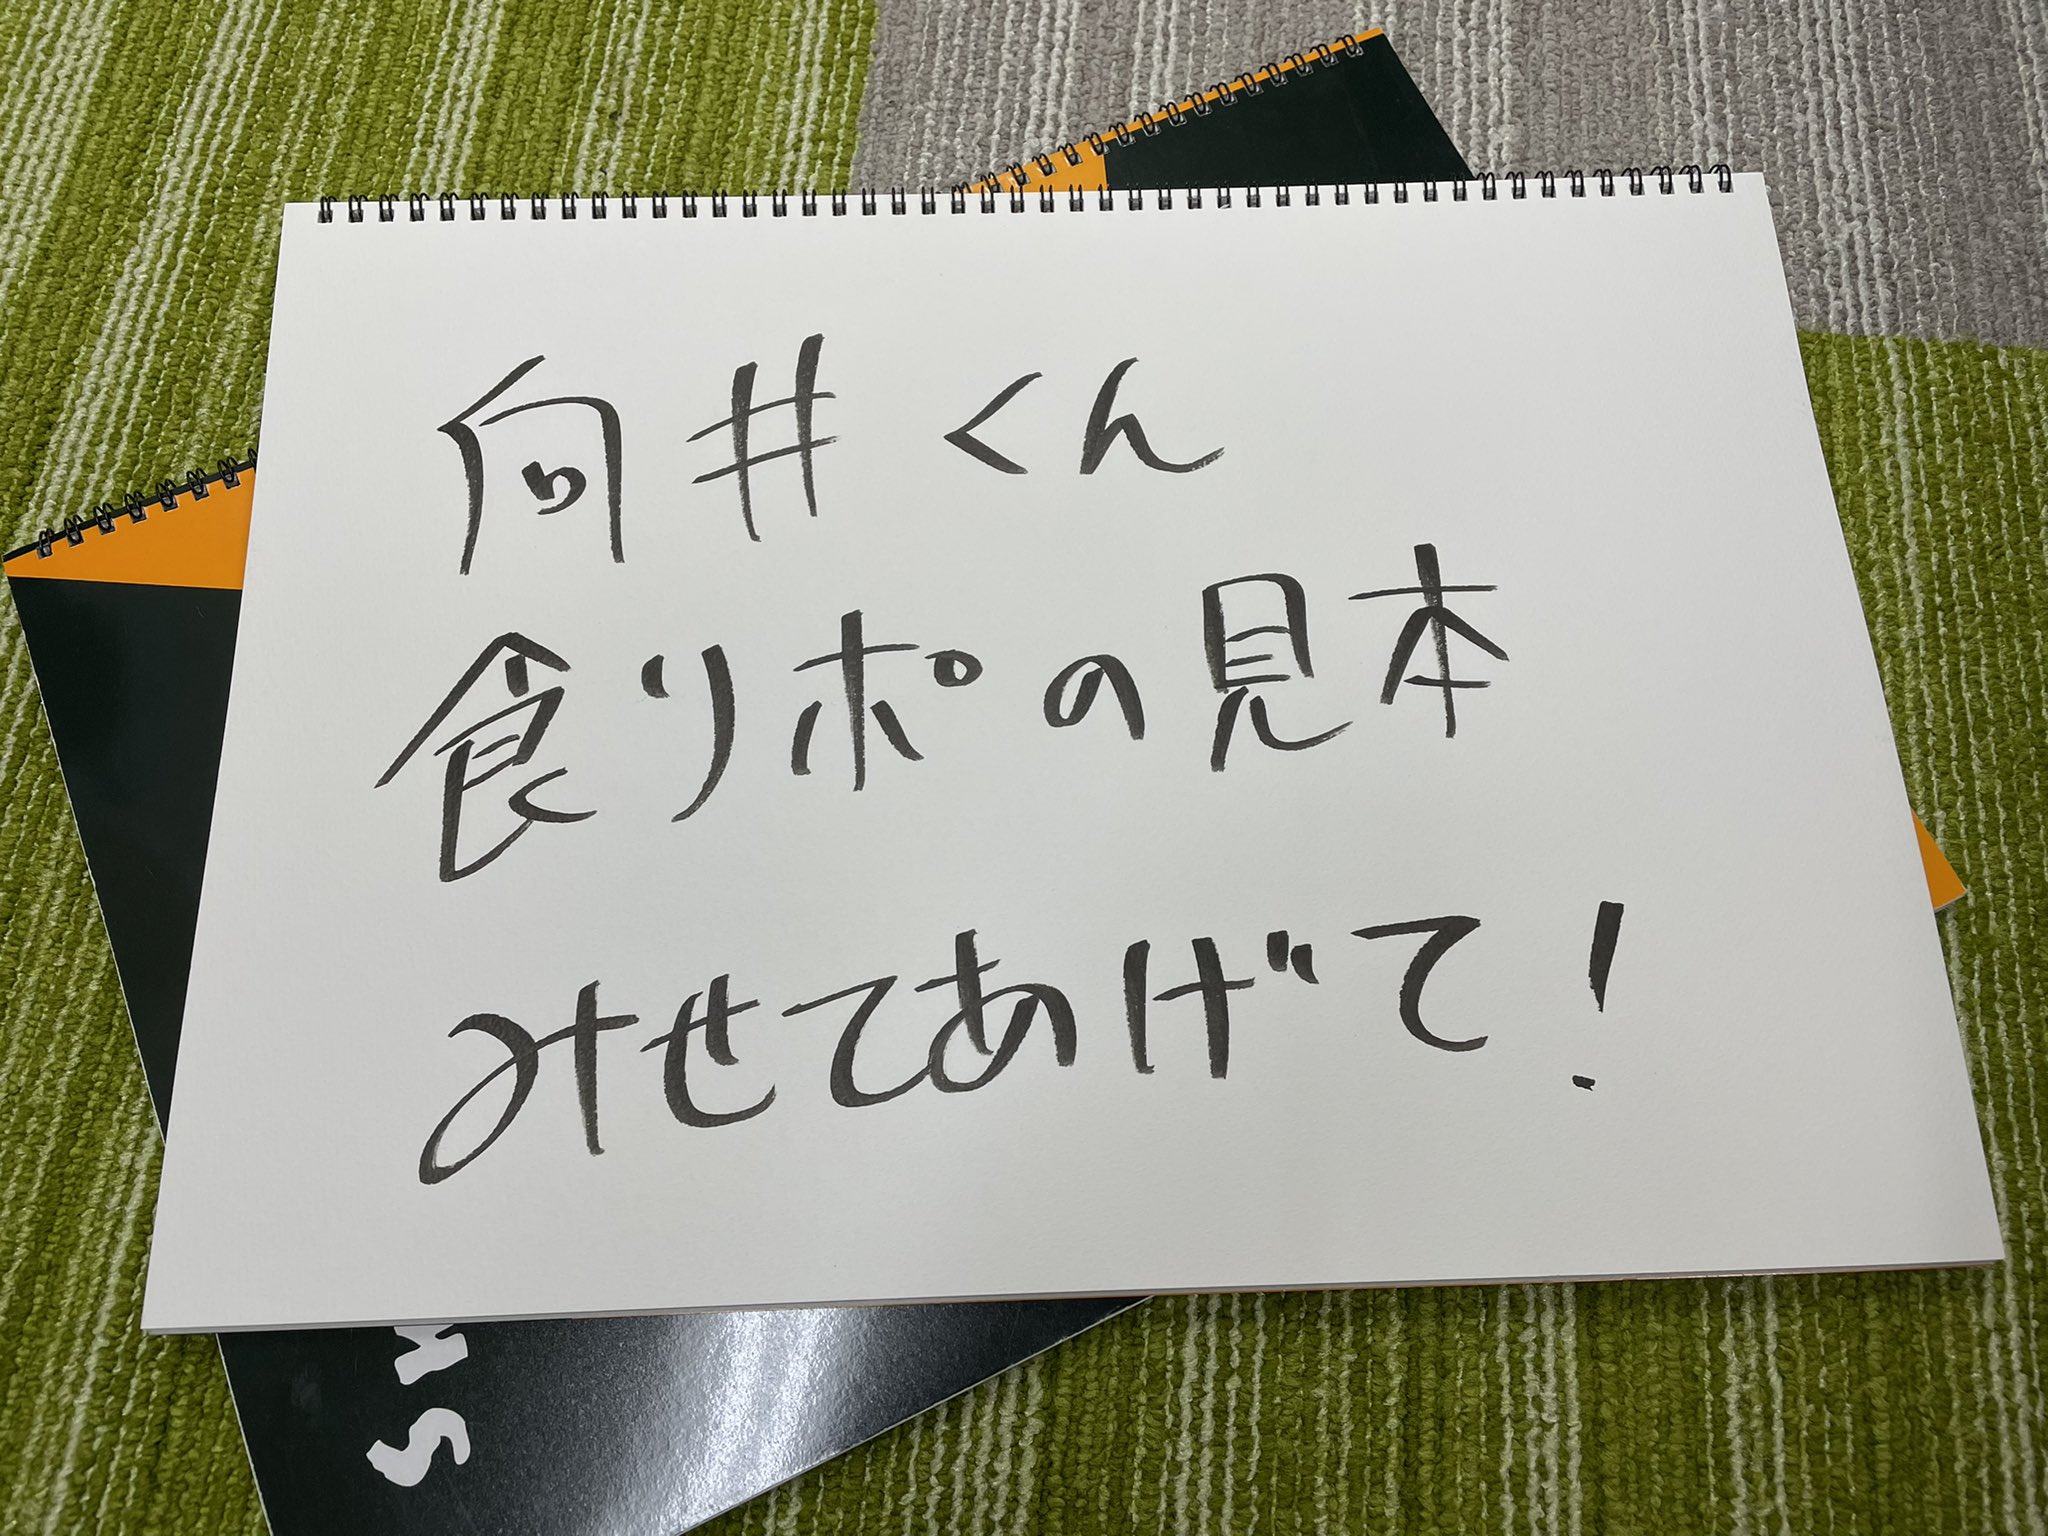 向井くん
食リポの見本
みせてあげて！